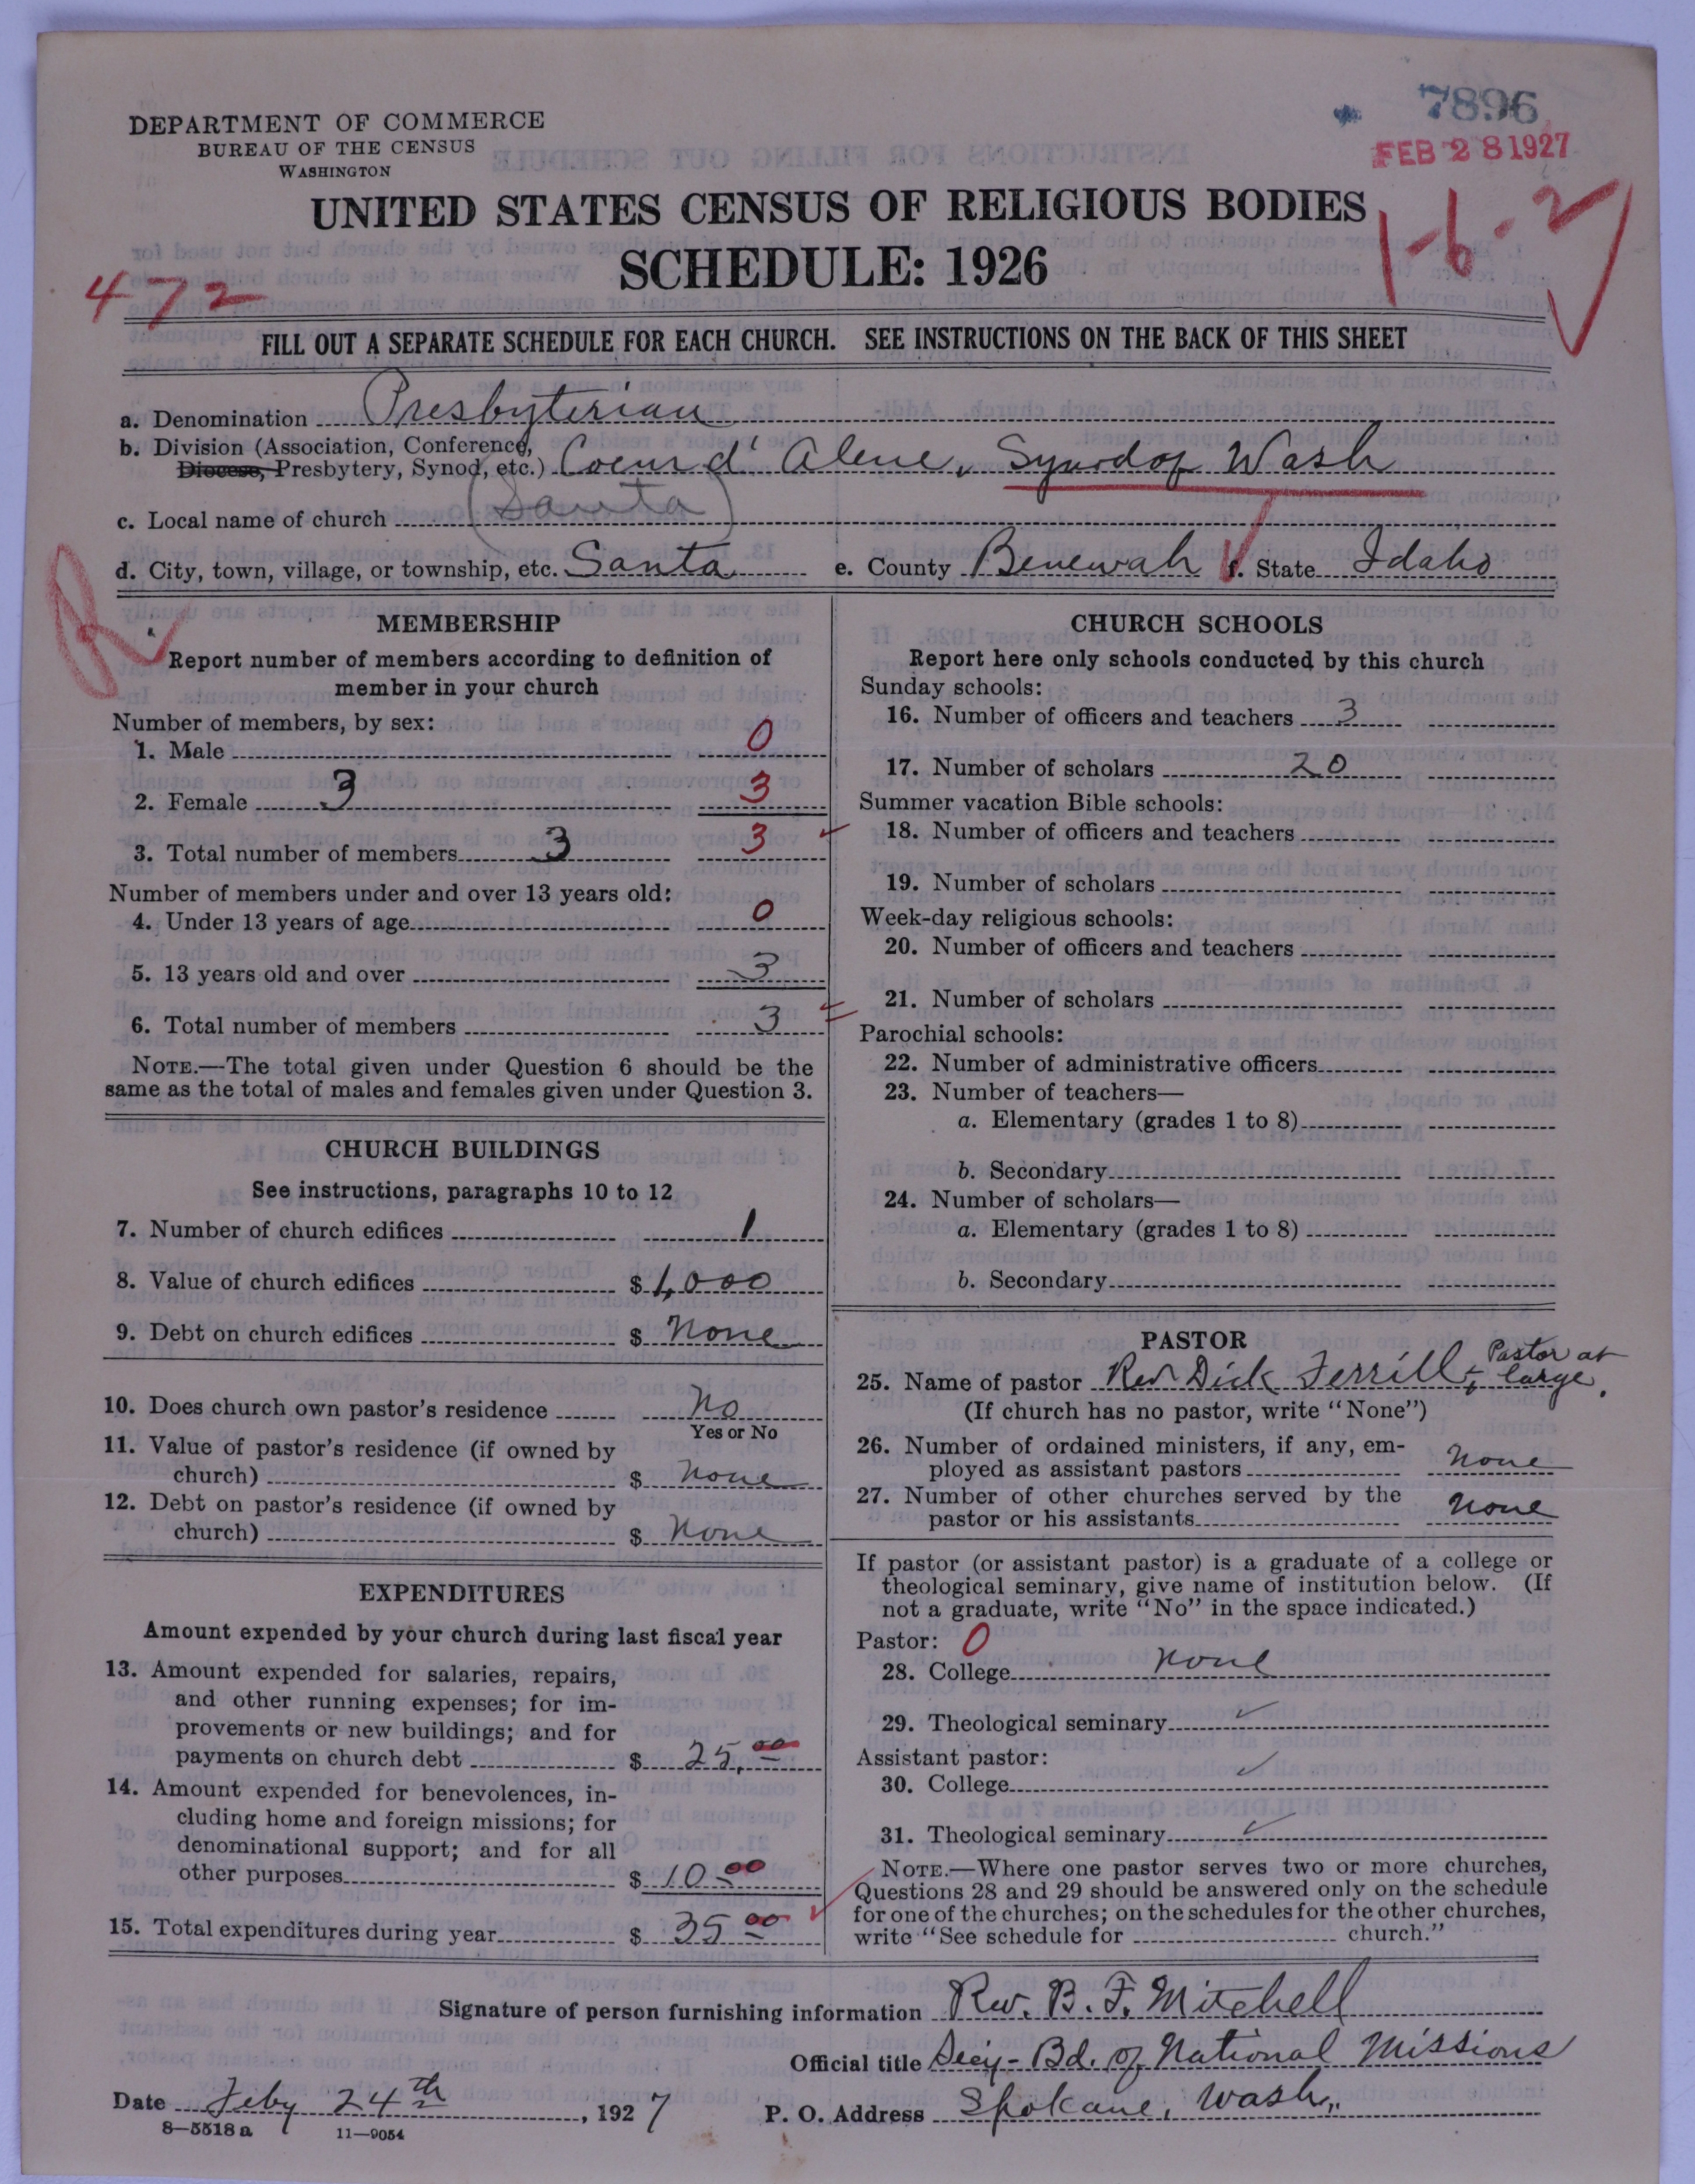 7896
FEB 28 1927
DEPARTMENT OF COMMERCE
BUREAU OF THE CENSUS
WASHINGTON
UNITED STATES CENSUS OF RELIGIOUS BODIES
SCHEDULE: 1926
1-6-2
472
FILL OUT A SEPARATE SCHEDULE FOR EACH CHURCH. SEE INSTRUCTIONS ON THE BACK OF THIS SHEET
a. Denomination Presbyterian
b. Division (Association, Conference,
Diocese, Presbytery, Synod, etc.) Coeur d' Alene, Synod of Wash
c. Local name of church (Santa)
d. City, town, village, or township, etc. Santa e. County Benewah f. State Idaho
R
MEMBERSHIP
Report number of members according to definition of
member in your church
Number of members, by sex:
1. Male 0
2. Female 3 3
3. Total number of members 3 3
Number of members under and over 13 years old:
4. Under 13 years of age 0
5. 13 years old and over 3
6. Total number of members 3
NOTE.—The total given under Question 6 should be the
same as the total of males and females given under Question 3.
CHURCH BUILDINGS
See instructions, paragraphs 10 to 12
7. Number of church edifices 1
8. Value of church edifices $ 1,000
9. Debt on church edifices $ None
10. Does church own pastor's residence No
Yes or No
11. Value of pastor's residence (if owned by
church) $ None
12. Debt on pastor's residence (if owned by
church) $ None
EXPENDITURES
Amount expended by your church during last fiscal year
13. Amount expended for salaries, repairs,
and other running expenses; for im-
provements or new buildings; and for
payments on church debt $ 25.00
14. Amount expended for benevolences, in-
cluding home and foreign missions; for
denominational support; and for all
other purposes $ 10.00
15. Total expenditures during year $ 35.00
CHURCH SCHOOLS
Report here only schools conducted by this church
Sunday schools:
16. Number of officers and teachers 3
17. Number of scholars 20
Summer vacation Bible schools:
18. Number of officers and teachers
19. Number of scholars
Week-day religious schools:
20. Number of officers and teachers
21. Number of scholars
Parochial schools:
22. Number of administrative officers
23. Number of teachers—
a. Elementary (grades 1 to 8)
b. Secondary
24. Number of scholars—
a. Elementary (grades 1 to 8)
b. Secondary
PASTOR
25. Name of pastor Rev Dick Ferrill, Pastor at large.
(If church has no pastor, write "None")
26. Number of ordained ministers, if any, em-
ployed as assistant pastors None
27. Number of other churches served by the
pastor or his assistants None
If pastor (or assistant pastor) is a graduate of a college or
theological seminary, give name of institution below. (If
not a graduate, write "No" in the space indicated.)
Pastor: 0
28. College None
29. Theological seminary ✓
Assistant pastor:
30. College ✓
31. Theological seminary ✓
NOTE.—Where one pastor serves two or more churches,
Questions 28 and 29 should be answered only on the schedule
for one of the churches; on the schedules for the other churches,
write "See schedule for church."
Signature of person furnishing information Rev. B. F. Mitchell
Official title Secy- Bd. of National Missions
Date Feby 24th, 1927 P. O. Address Spokane, Wash.
8—5518 a 11—9054